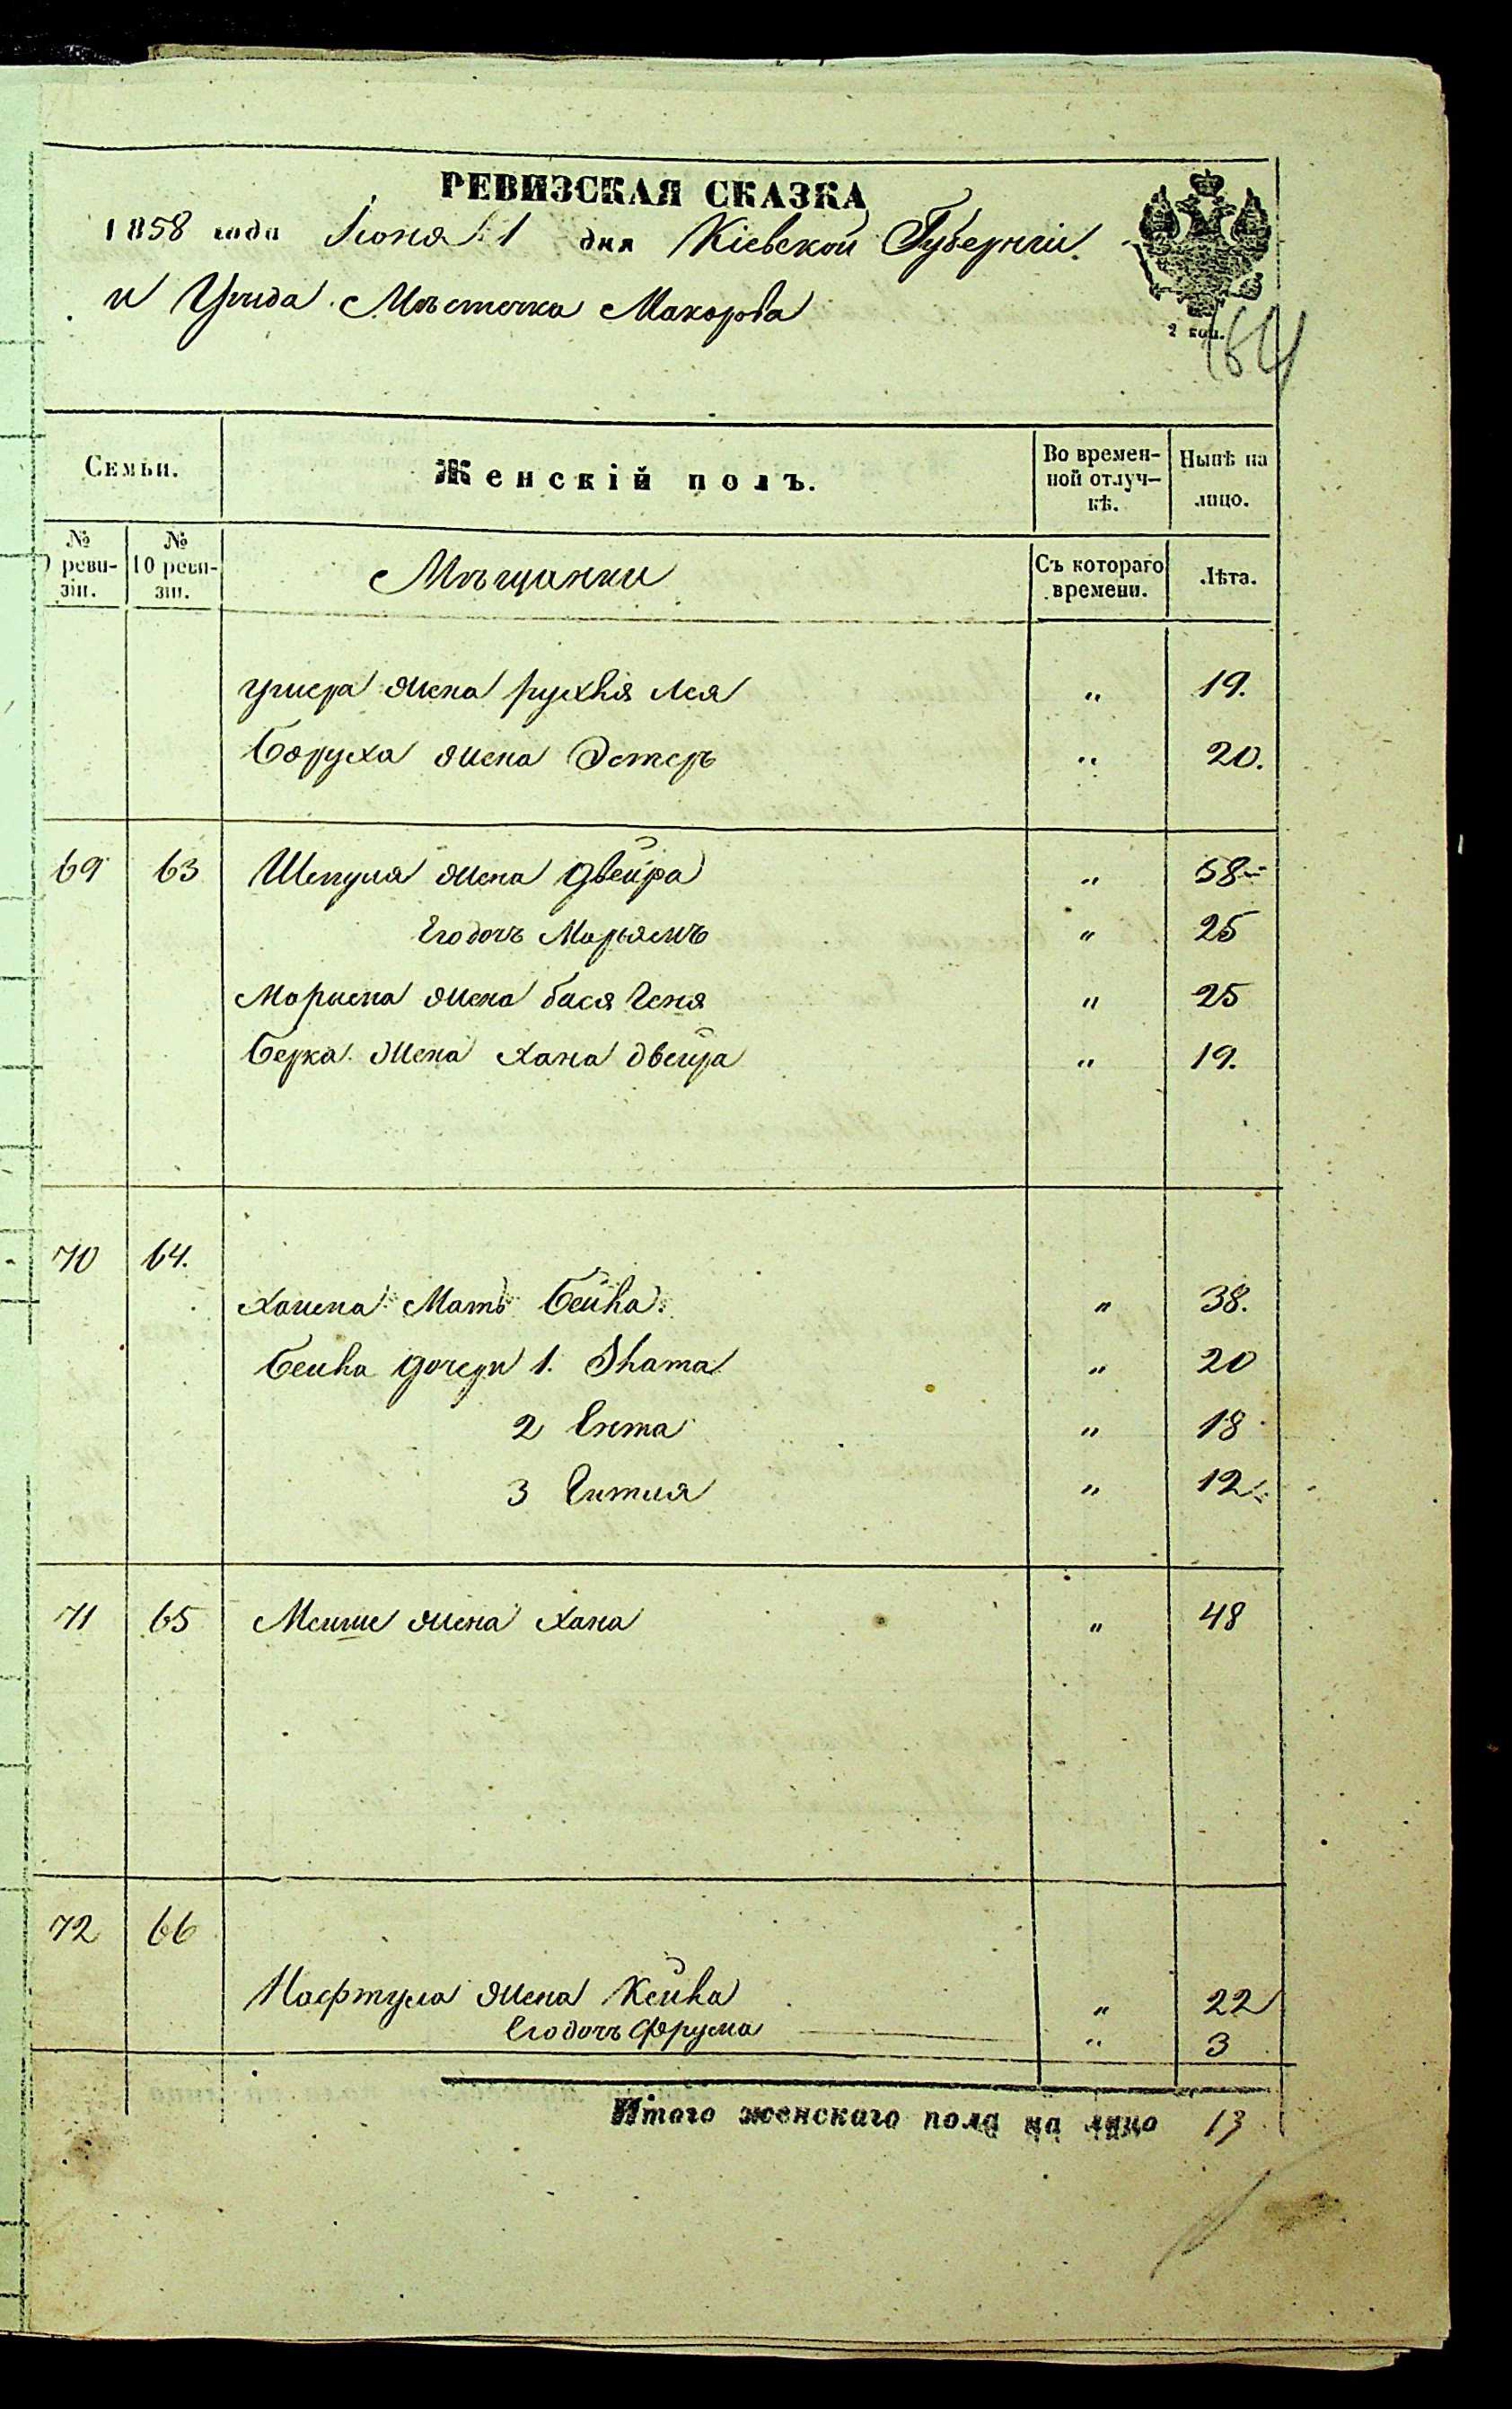 РЕВИЗСКАЯ СКАЗКА
1858 года Іюня 1 дня Кіевской Губерніи
и Уѣзда Мѣстечка Макарова
2 коп.
164
Семьи.
Женскій полъ.
Во времен-
ной отлуч-
кѣ.
Нынѣ на
лицо.
№
реви-
зіи.
№
10 реви-
зіи.
Мѣщанки
Съ котораго
времени.
Лѣта.
жена Рухля Лея " 19.
Боруха жена Эстеръ " 20.
69 63 жена Двейра " 58
Его дочь Марьямъ " 25
жена бася Геня " 25
Берка жена Хана двейра " 19.
70 64.
Хаима Мать Бейла " 38.
Бейла дочери 1. Злата " 20
2 Ента " 18
3 Гитля " 12
71 65 жена Хана " 48
72 66
Нафтула жена Кейла " 22
Его дочь Фрума " 3
Итого женскаго пола на лицо 13